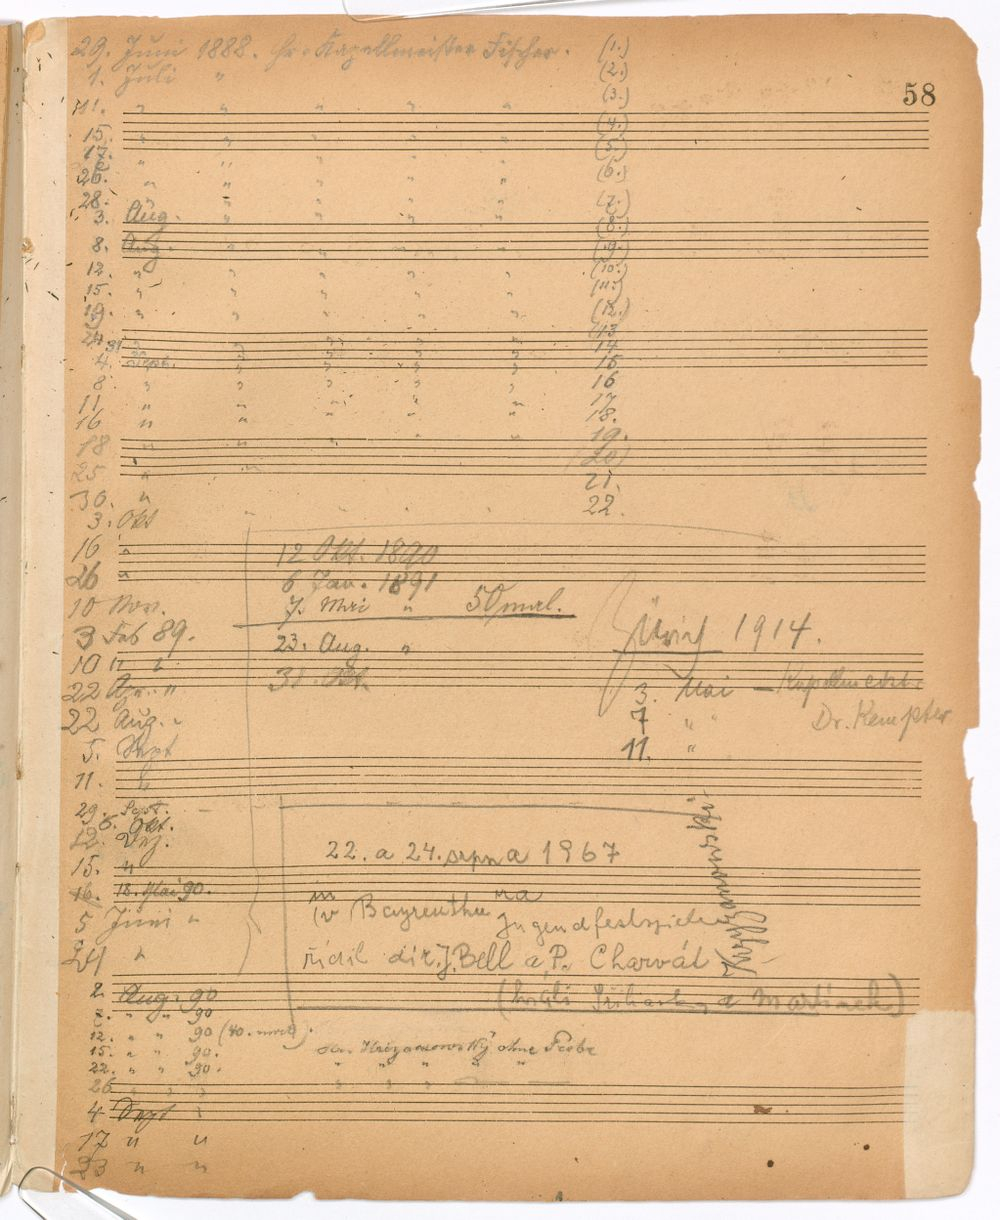 29. Juni 1888. Hr. Kapellmeister Fischer. (1.)
1. Juli " (2.)
(3.)
58
11. " " " " "
(4.)
15. " " " " "
17. (5.)
" " " " "
26. (6.)
" " " " "
28. (7.)
3. Aug. " " " "
(8.)
8. Aug. " " " " (9.)
12. " " " " " (10.)
15. " " " " " (11.)
19. " " " " " (12.)
24. (13
31 " " " " " 14
4. Sept. " " " " 15
8. " " " " " 16
11 " " " " " 17
16 " " 18.
18 " " " " " 19.
25 " " (20)
21.
30. " 22.
3. Okt " " " " "
16 " 12 Okt. 1890
26 " 6 Jan. 1891
10 Nov. 7. Mai " 50 mal.
3 Feb 89. 23. Aug. " Zürich 1914.
10 " "
22 Apr. " 31. Okt. 3. Mai – Kapellmeister
22 Aug. " 7 " " Dr. Kempter
5. Sept 11. "
11. "
29. Sept.
6. Okt.
12. Dez.
15. " 22. a 24. srpna 1967
16. 18. Mai 90. in na
5 Juni " (v Bayreuthu Jugendfestspiele
24 " řídil dir. J. Bell a P. Charvát
2. Aug. 90 a Martinek)
7. " " 90
12. " " 90 (40. mal).
15. " " 90. ohne Probe
22. " " 90. " " " " "
26 " "
4 Sept "
17 " "
23 " "